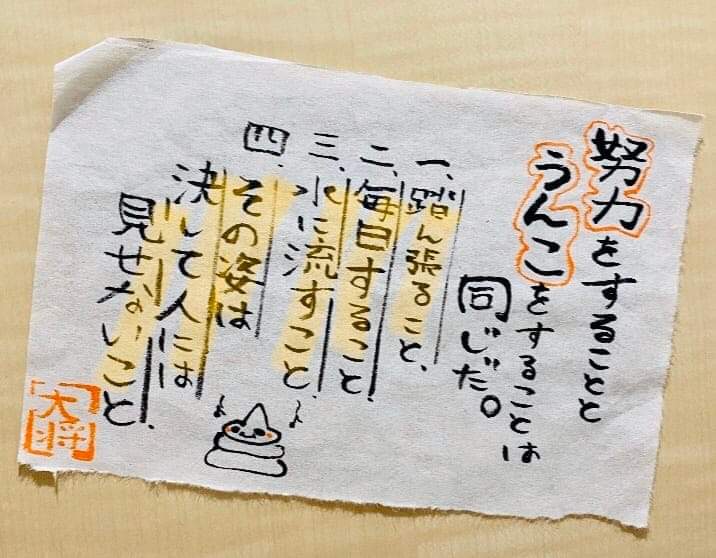 努力をすることと
うんこをすることは
同じだ。
一、踏ん張ること、
二、毎日すること、
三、水に流すこと、
四、その姿は
決して人には
見せないこと、
大将